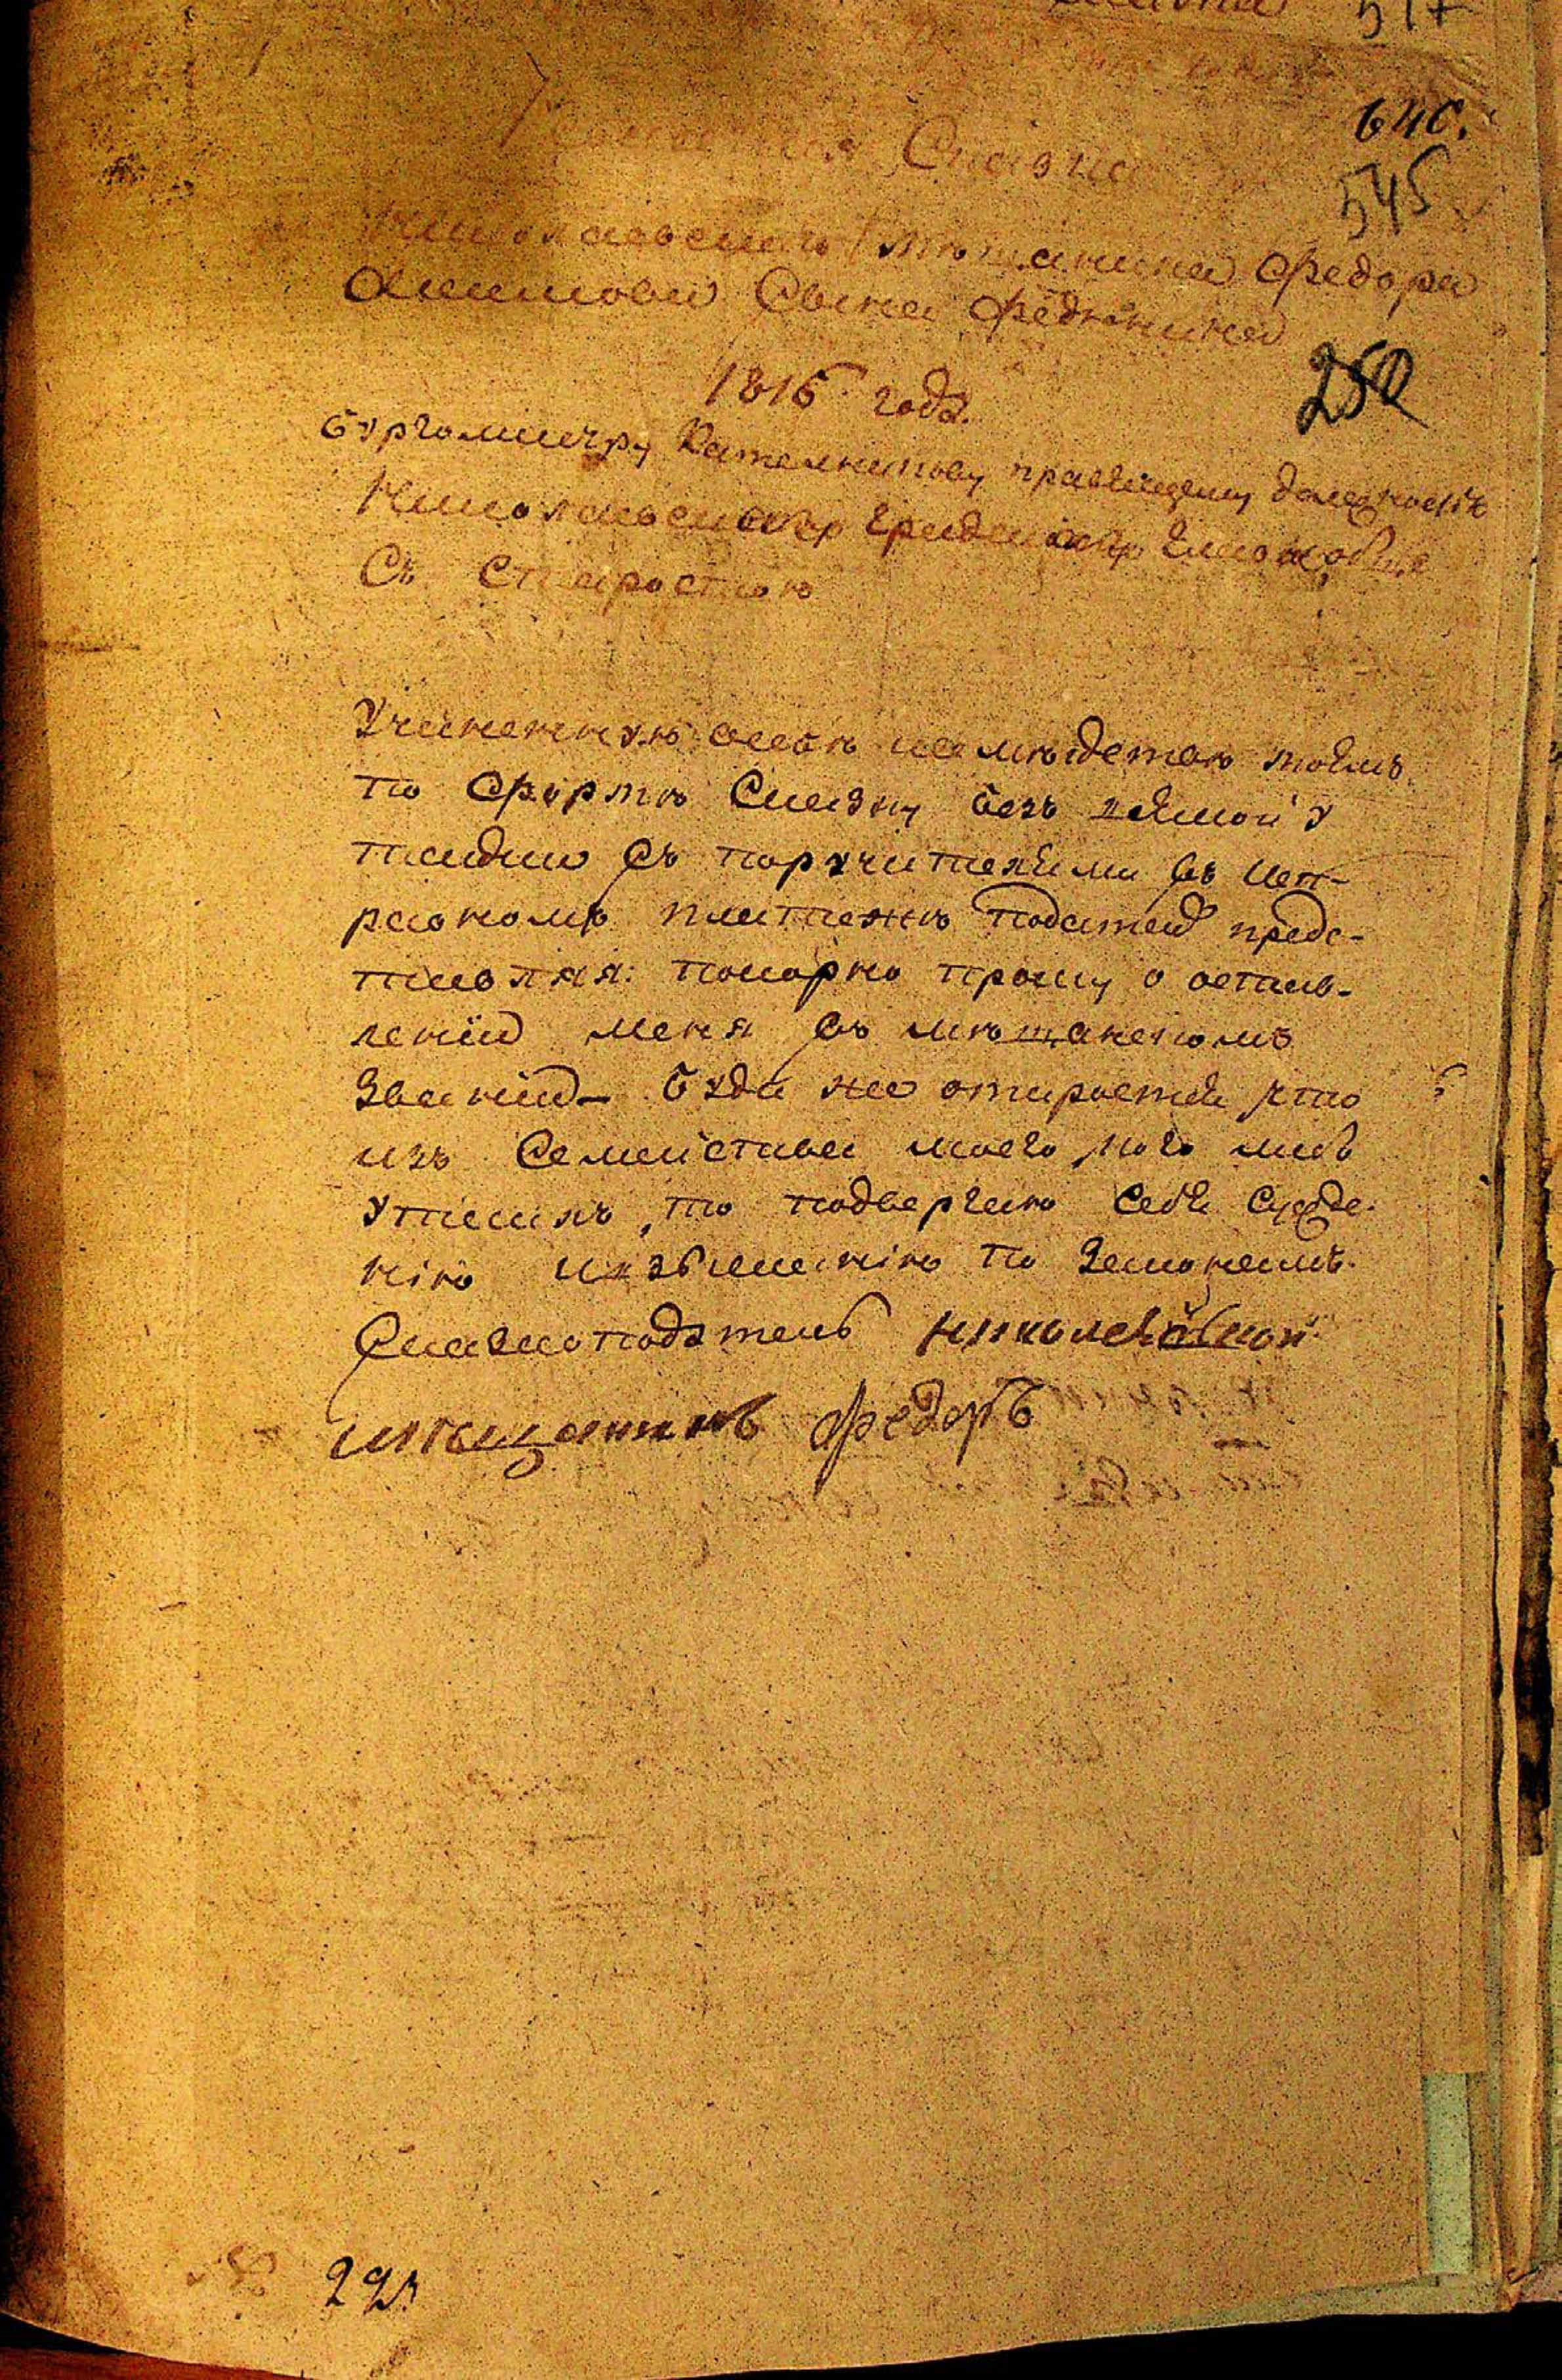 517
640.
545
Сказка
Николаевскаго мѣщанина Федора
Акимова Сына Федянина
250
1816 года.
бургомистру Котелникову правящему должность
Николаевскаго градскаго главы
Съ Старостою
Учиненную о себѣ и семѣйствѣ моемъ
по Формѣ Сказку безъ всякой у
тайки съ поручителями въ исп-
равномъ платежѣ податей предс-
тавляя: покорно прошу о остав-
леніи меня въ мѣщанскомъ
званіи. буди же откроется что
изъ Семейства моего кого либо
утаилъ, то подвергаю Себя Сужде-
нію и взысканію по Законамъ.
Сказкоподатель николаевской
мѣщанинъ Федоръ
223